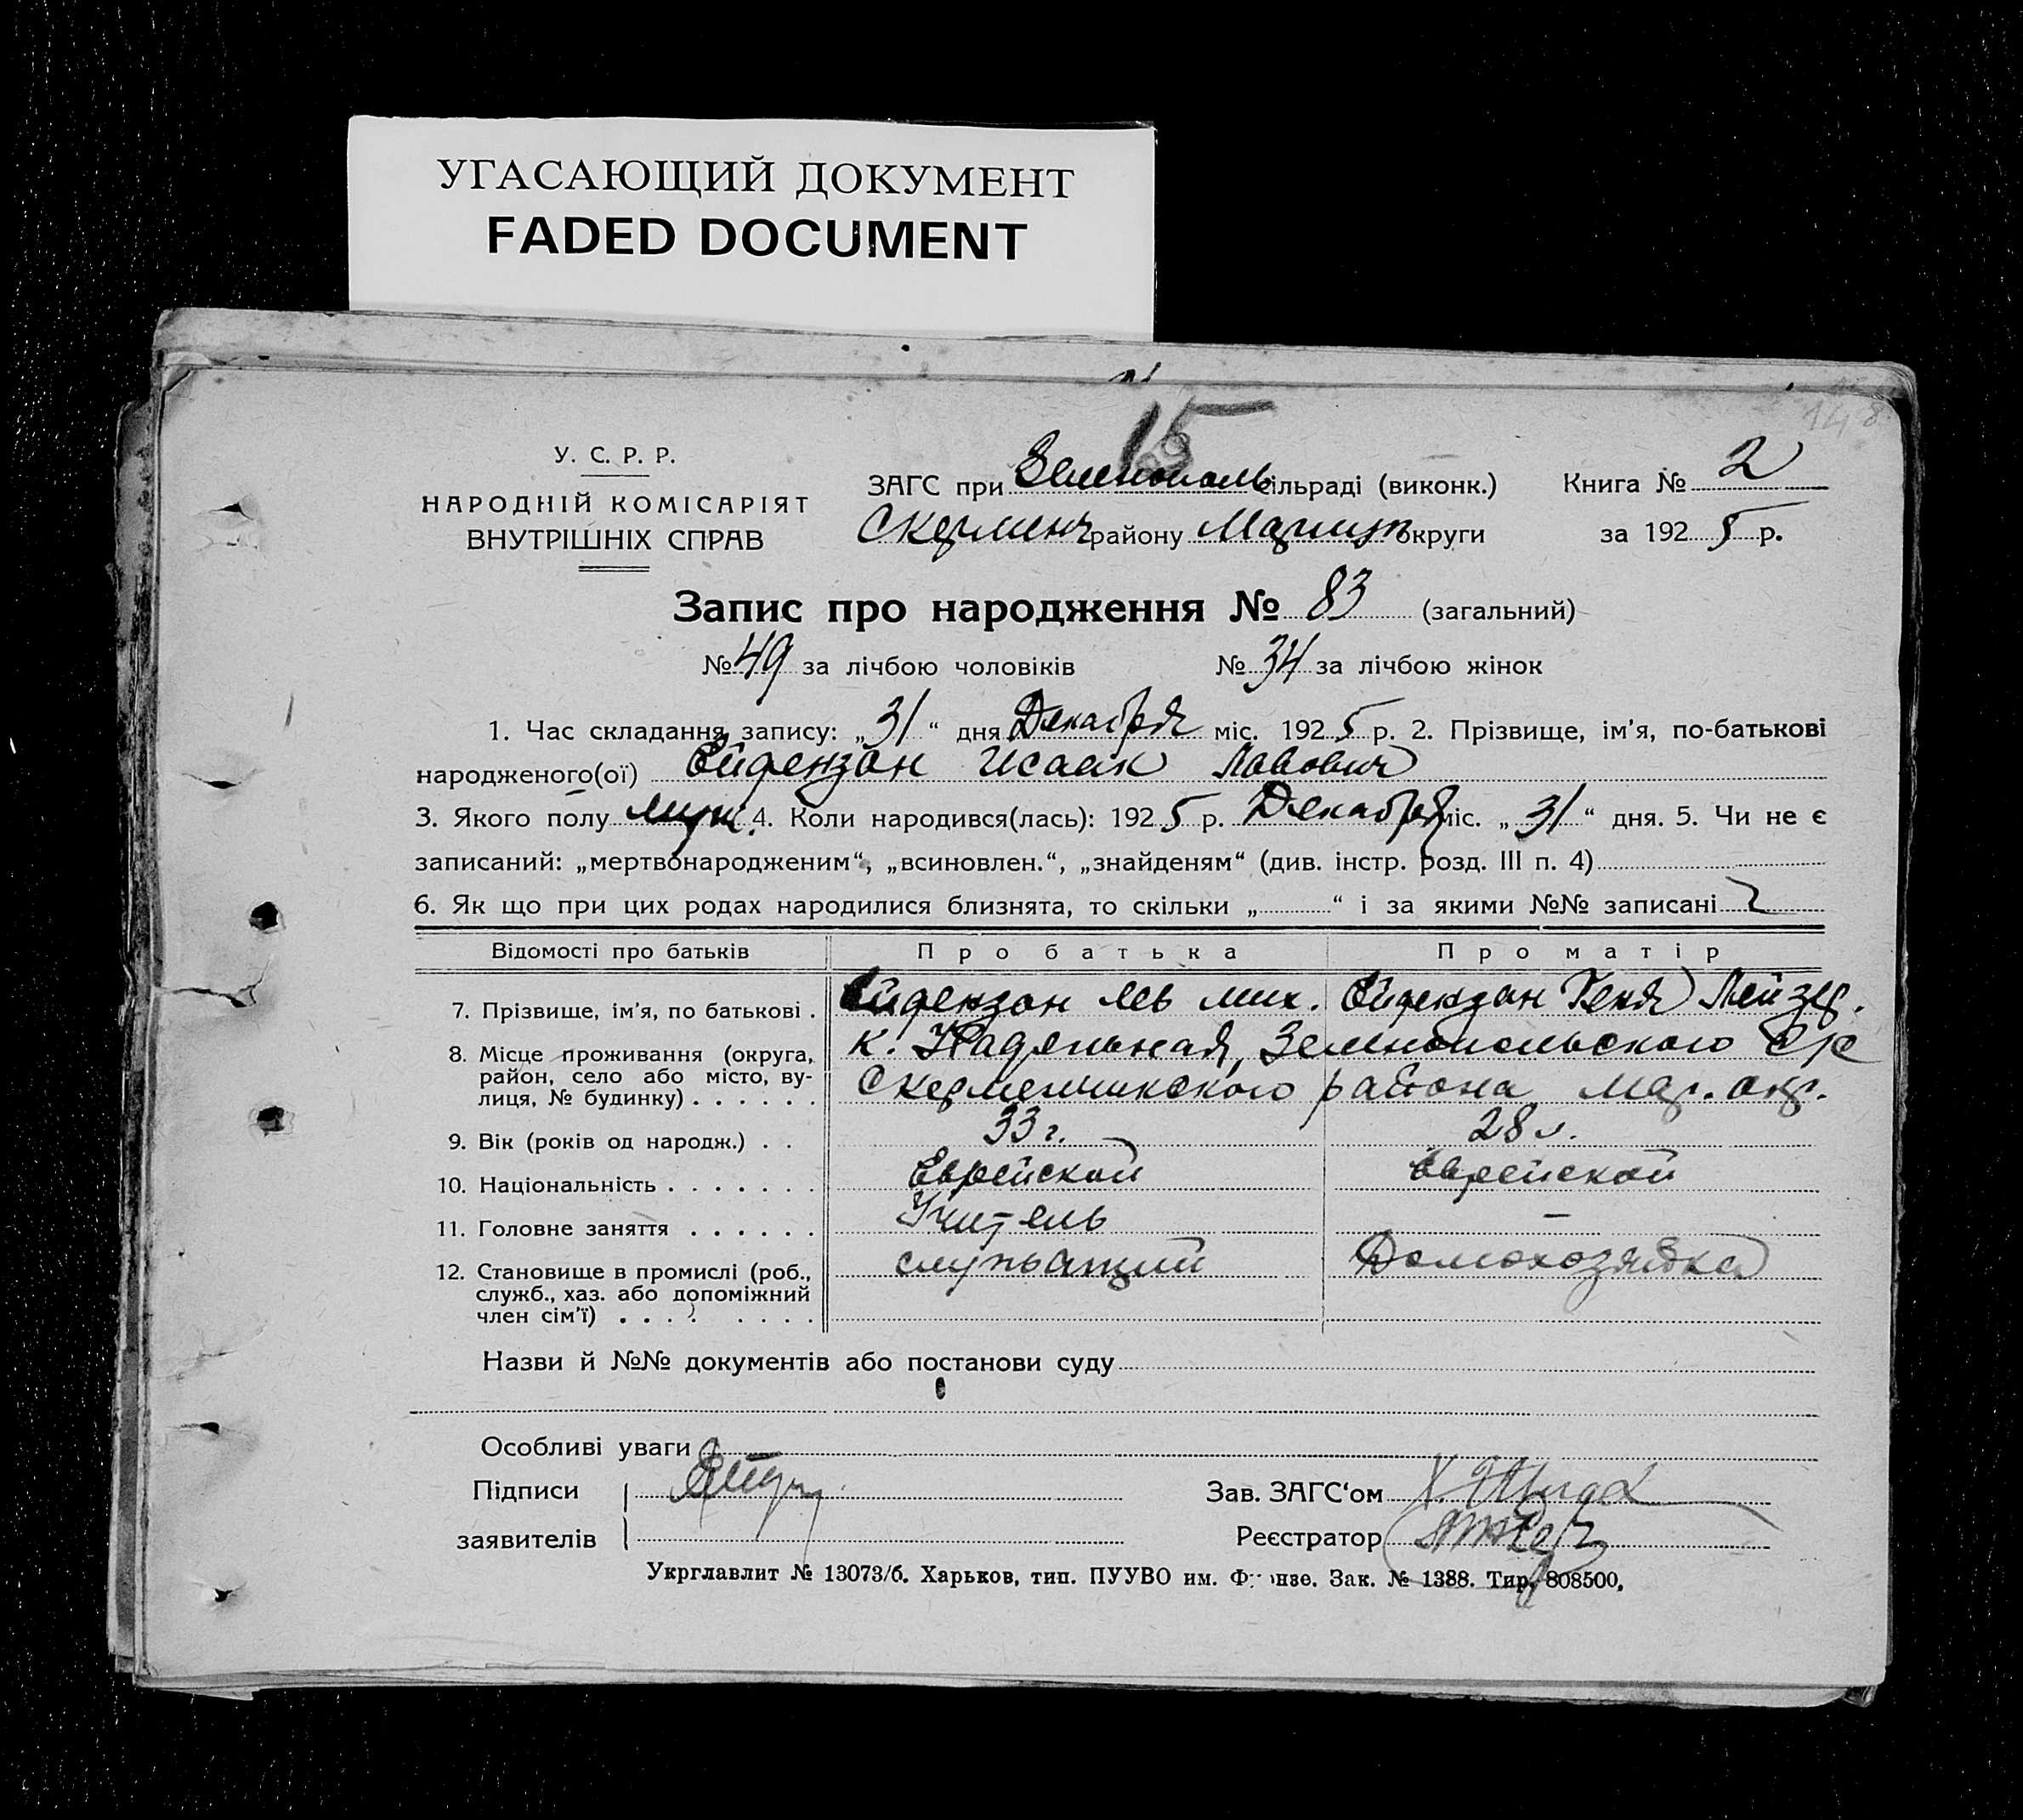 УГАСАЮЩИЙ ДОКУМЕНТ
FADED DOCUMENT
15
148
У. С. Р. Р.
НАРОДНІЙ КОМІСАРІЯТ
ВНУТРІШНІХ СПРАВ
ЗАГС при Зеленополь сільраді (виконк.) Книга № 2
Скерменч району Мариуп округи за 1925 р.
Запис про народження № 83 (загальний)
№ 49 за лічбою чоловіків № 34 за лічбою жінок
1. Час складання запису: „31“ дня Декабря міс. 1925 р. 2. Прізвище, ім'я, по-батькові
народженого(ої) Ейдензон Исаак Лавович
3. Якого полу муж. 4. Коли народився(лась): 1925 р. Декабря міс. „31“ дня. 5. Чи не є
записаний: „мертвонародженим“, „всиновлен.“, „знайденям“ (див. інстр. розд. III п. 4)
6. Як що при цих родах народилися близнята, то скільки „ “ і за якими №№ записані 2
Відомості про батьків Про батька Про матір
7. Прізвище, ім'я, по батькові . Ейдензон Лев Мих. Ейдензон Геня Лейзер.
8. Місце проживання (округа, район, село або місто, вулиця, № будинку) . . . . . . к. Надельная, Зеленопольского с/с
Скерменчикского района Мар. окр.
9. Вік (років од народж.) . . 33 г. 28 л.
10. Національність . . . . . . . Еврейской Еврейской
11. Головне заняття . . . . . . Учитель —
12. Становище в промислі (роб., служб., хаз. або допоміжний член сім'ї) . . . . . . . . служащий Домохозяйка
Назви й №№ документів або постанови суду
Особливі уваги
Підписи
заявителів
Зав. ЗАГС'ом
Реєстратор
Укрглавлит № 13073/б. Харьков, тип. ПУУВО им. Фрунзе. Зак. № 1388. Тир. 808500,